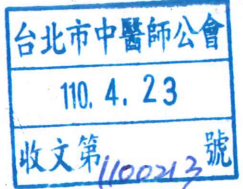 台北市中醫師公會
110. 4. 23
收文第1100213號